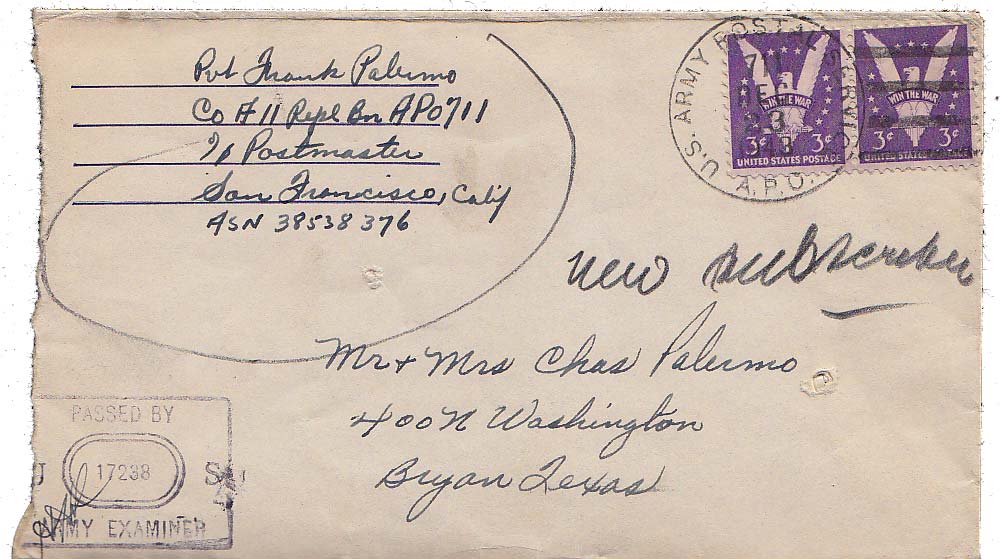 Pvt Frank Palermo
Co A 11 Repl Bn APO 711
℅ Postmaster
San Francisco, Calif
ASN 38538376
U.S. ARMY POSTAL SERVICE
711
DEC
23
1943
A.P.O.
WIN THE WAR
3¢ 3¢
UNITED STATES POSTAGE
WIN THE WAR
3¢ 3¢
UNITED STATES POSTAGE
New Subscriber
Mr + Mrs Chas Palermo
400 N Washington
Bryan Texas
PASSED BY
U 17238 S
ARMY EXAMINER